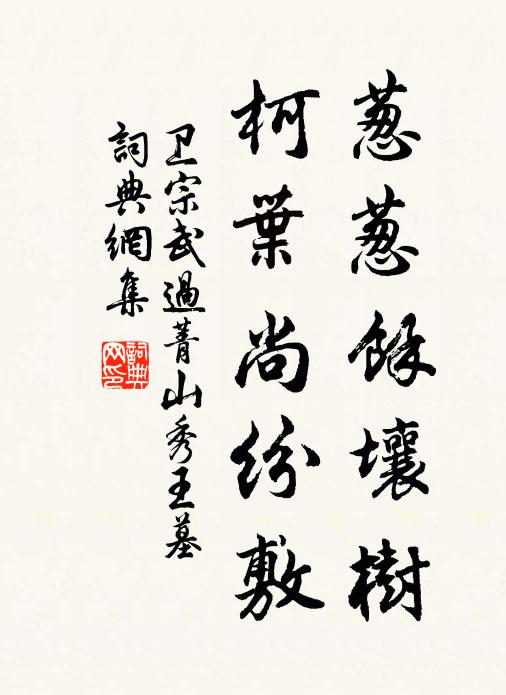 葱葱餘壤樹
柯葉尚紛敷
卫宗武過菁山秀王墓
詞典網集
詞典网印